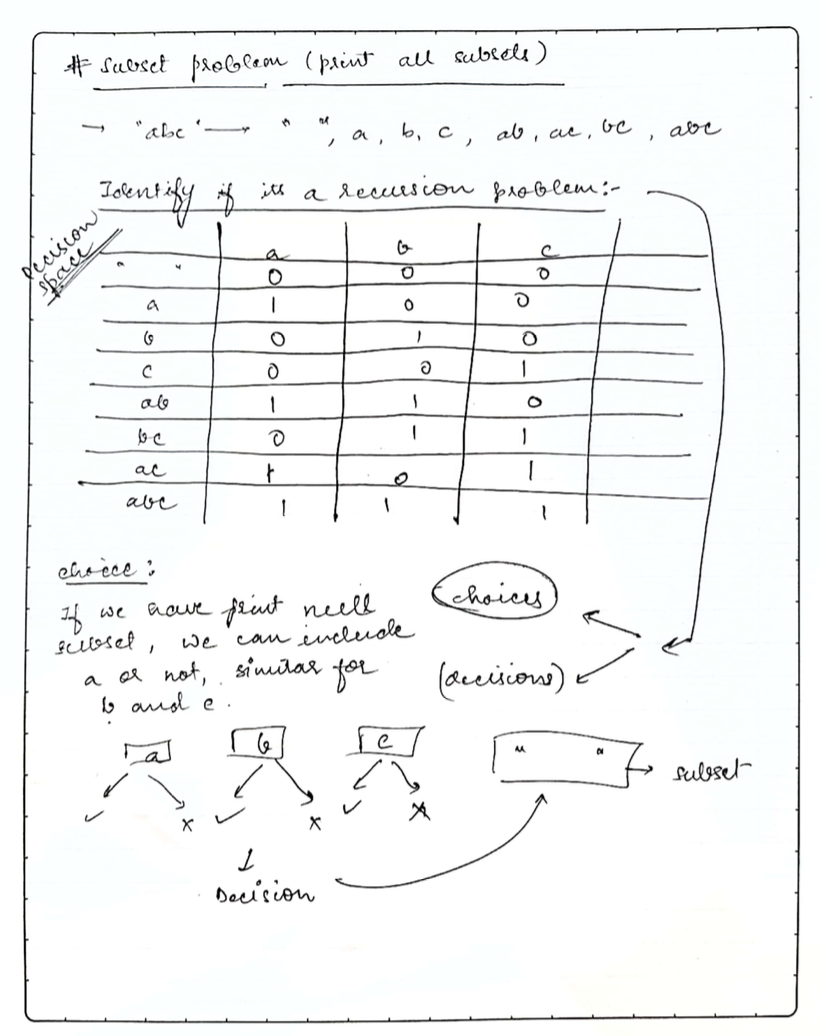 # Subset problem (print all subsets)
→ "abc" → " ", a, b, c, ab, ac, bc, abc
Identify if its a recursion problem:-
Decision space
a b c
" " 0 0 0
a 1 0 0
b 0 1 0
c 0 0 1
ab 1 1 0
bc 0 1 1
ac 1 0 1
abc 1 1 1
choice:
If we have print null
subset, we can include
a or not, similar for
b and c.
choices
(decisions)
a b c
" " → subset
✓ x ✓ x ✓ x
Decision